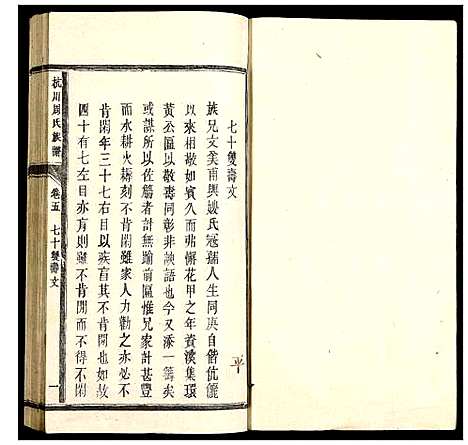 七十雙壽文
族兄文美甫與嫂氏冠孺人生同庚自偕伉儷
以來相敬如賓久而弗懈花甲之年資溪集環
黃公區以敬壽同彰非諛語也今又添一籌矣
或謀所以佐觴者計無踰前區惟兄家計甚豐
而水耕火耨刻不肯閑雖家人力勸之亦必不
肯閑年三十七右目以疾盲其不肯閑也如故
四十有七左目亦盲則雖不肯閑而不得不閑
杭川周氏族譜
卷五
七十雙壽文
一
平